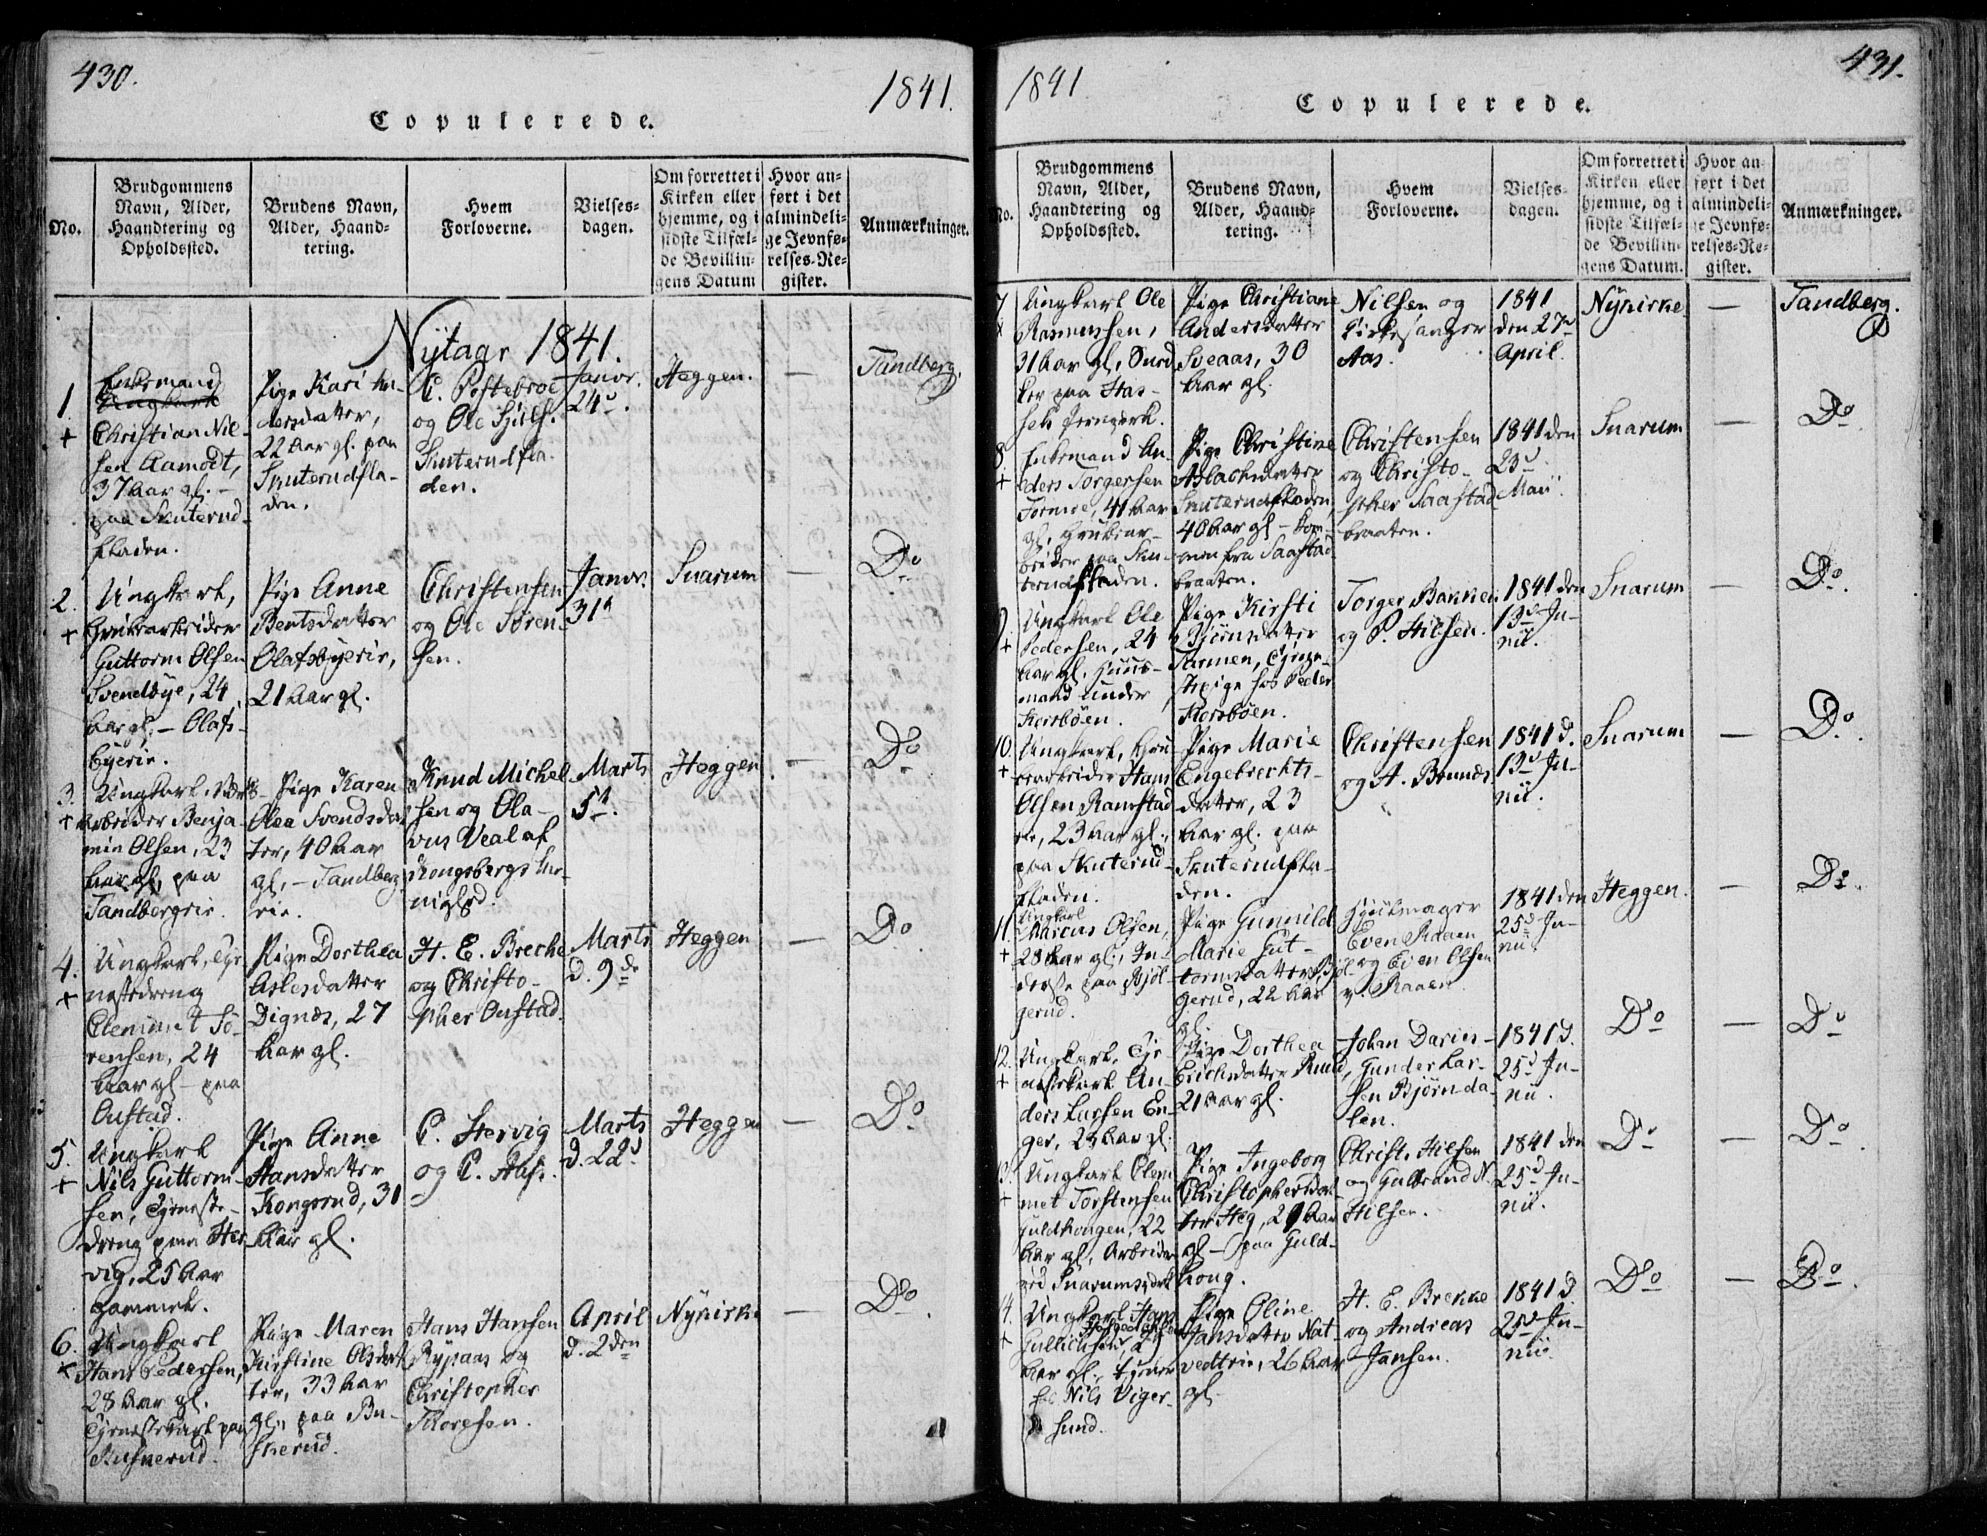 430.
1841.
Copulerede.
No.
Brudgommens
Navn, Alder,
Haandtering og
Opholdssted.
Brudens Navn,
Alder, Haand-
tering.
Hvem
Forloverne.
Vielses-
dagen.
Om forrettet i
Kirken eller
hjemme, og i
sidste Tilfæl-
de Bevillin-
gens Datum
Hvor an-
ført i det
almindeli-
ge Jevnfø-
relses-Re-
gister.
Anmærkninger.
Nytaar 1841.
1.
+
Enkemand
Ungkarl
Christian Nil-
sen Aamodt,
37 Aar gl. -
paa Skuterud-
fladen.
Pige Kari An-
dersdatter,
22 Aar gl. paa
Skuterudfla-
den.
C. Pestebroe
og Ole Sjuls.
Skuterudfla-
den.
Janvr.
24d.
Heggen.
—
Tandberg.
2.
+
Ungkarl,
Grubearbeider
Guttorm Olsen
Svendbye, 24
Aar gl. - Olafs-
byeeie.
Pige Anne
Bentsdatter
Olafsbyeeie,
21 Aar gl.
Christensen
og Ole Sören-
sen.
Janvr.
31te
Snarum
—
Do
3.
+
Ungkarl, Værk-
arbeider Benja-
min Olsen, 23
Aar gl, paa
Tandbergeie.
Pige Karen
Olea Svendsdat-
ter, 40 Aar
gl, - Tandberg-
eie.
Knud Michel-
sen og Ola-
vus Veal af
Kongsbergs
Marts
5te.
Heggen.
—
Do
4.
+
Ungkarl, Tje-
nestedreng
Clemmet Sö-
rensen, 24
Aar gl - paa
Oustad.
Pige Dorthea
Aslesdatter
Dignæs, 27
Aar gl.
H. E. Breche
og Christo-
pher Oustad.
Marts
d. 9de
Heggen
—
Do
5.
+
Ungkarl
Nils Guttorm-
sen, Tjeneste-
dreng paa Her-
vig, 25 Aar
gammel.
Pige Anne
Hansdatter
Kongsrud, 31
Aar gl.
C. Hervig
og C. Aas.
Marts
d. 22d
Heggen
—
Do.
6.
+
Ungkarl
Hans Pedersen,
28 Aar gl.
Tjenestekarl paa
Buskerud.
Pige Maren
Kirstine Olsdat-
ter, 33 Aar
gl, paa Bu-
skerud.
Hans Hansen
Rypaas og
Christopher
Thoresen.
April
d. 2den
Nykirke
—
Do.
431.
1841
Copulerede.
No.
Brudgommens
Navn, Alder,
Haandtering og
Opholdssted.
Brudens Navn,
Alder, Haand-
tering.
Hvem
Forloverne.
Vielses-
dagen.
Om forrettet i
Kirken eller
hjemme, og i
sidste Tilfæl-
de Bevillin-
gens Datum.
Hvor an-
ført i det
almindeli-
ge Jevnfø-
relses-Re-
gister.
Anmærkninger.
7.
+
Ungkarl Ole
Rasmussen,
31 Aar gl, Sned-
ker paa Has-
sels Jernverk.
Pige Christiane
Andersdatter
Sveaas, 30
Aar gl.
Nilsen og
Kirkesanger
Aas.
1841
den 27de
April.
Nykirke
—
Tandberg.
8.
+
Enkemand An-
ders Torgersen
41 Aar
gl, Grubear-
beider paa Sku-
terudfladen.
Pige Christine
Aslachsdatter
Skuterudfladen,
40 Aar gl - kom-
men fra Saastad
braaten.
Christensen
og Christo-
pher Saastad
braaten.
1841 den
23d
Maii.
Snarum
—
Do
9.
+
Ungkarl Ole
Pedersen, 24
Aar gl. Huus-
mand under
Korsböen.
Pige Kirsti
Björnsdatter
Tarmen, Tjene-
stpige hos Peder
Korsböen.
Torger Bakken
og P. Hilsen.
1841 den
13d Ju-
nii.
Snarum
—
Do.
10.
+
Ungkarl, Gru-
bearbeider Hans
Olsen Ramstad
eie, 23 Aar gl.,
paa Skuterud-
fladen.
Pige Marie
Engebrechts-
datter, 23
Aar gl. paa
Skuterudfla-
den.
Christensen
og A. Bounæs
1841 d.
13d Ju-
nii.
Snarum
—
Do.
11.
+
Ungkarl
Marcus Olsen,
28 Aar gl., In-
derste paa Bjöl-
gerud.
Pige Gunnild
Marie Gut-
tormsdatter Bjöl-
gerud, 22 Aar
gl.
Hjulmager
Even Raaen
og Even Olsen
v. Raaen.
1841 den
25d Ju-
nii.
Heggen.
—
Do.
12.
+
Ungkarl, Tje-
nestekarl An-
ders Larsen En-
ger, 24 Aar gl.
Pige Dorthea
Erichsdatter Ruud,
21 Aar gl.
Johan Daries-
Gunder Lar-
sen Björnda-
len.
1841 d.
25d Ju-
nii.
Do
—
Do
13.
+
Ungkarl Clem-
met Torstensen
Guldhongen, 22
Aar gl, Arbeider
ved Snarumsverk
Pige Ingeborg
Christophersdat-
ter Heg, 29 Aar
gl - paa Guld-
hong.
Christ. Hilsen
og Gulbrand N.
Hilsen.
1841 den
25d Ju-
nii.
Do
—
Do
14.
+
Ungkarl Hans
Gullichsen, 25
Aar gl, tjener
hos Nils Viger-
sund.
Pige Oline
Jansdatter Nat-
vedteie, 26 Aar
gl.
H. E. Brekke
og Andreas
Jansen.
1841 d
25d Ju-
nii.
Do
—
Do.